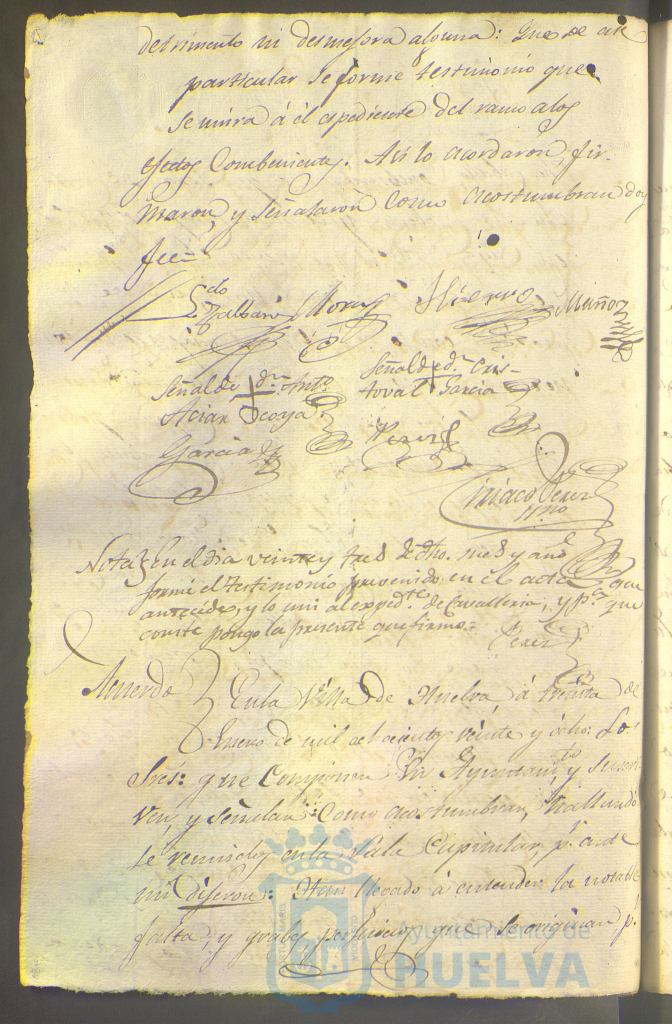 detrimento ni desmejora alguna: Que de este
particular se forme testimonio que
se unira á el espediente del ramo a los
efectos combenientes. Asi lo acordaron, fir-
maron, y señalaron como acostumbran doy
fee=
Ldo Moras Hierro Muñoz
Señal de + dn. Anto.
Señal + de dn. Cris-
toval Garcia
Garcia Perez
Ciriaco Perez
Nota En el dia veinte y tres de dho. mes y año
formé el testimonio prevenido en el acta que
antecede, y lo uni al expedte. de Cavalleria, y pa. que
conste pongo la presente que firmo=
Perez
Acuerdo En la Villa de Huelva á treinta de
Enero de mil ochociento veinte y ocho: Los
Sres: que componen su Ayuntamto. y suscri-
ven, y señalan como acostumbran, hallandо
se reunidos en la Sala Capitular, pr. ante
mi dijeron: Han llegado á entender la notable
falta, y grabes perjuicios que se originan pr.
Ayuntamiento de
HUELVA